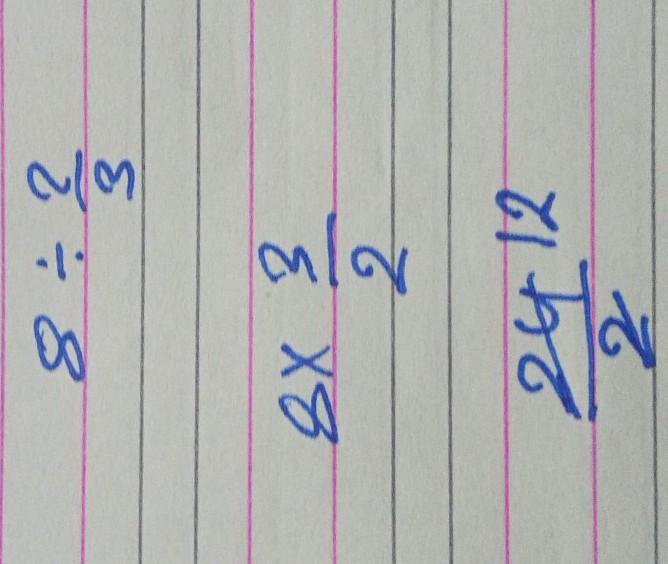 8 ÷ 2/3
8 x 3/2
24/2 12